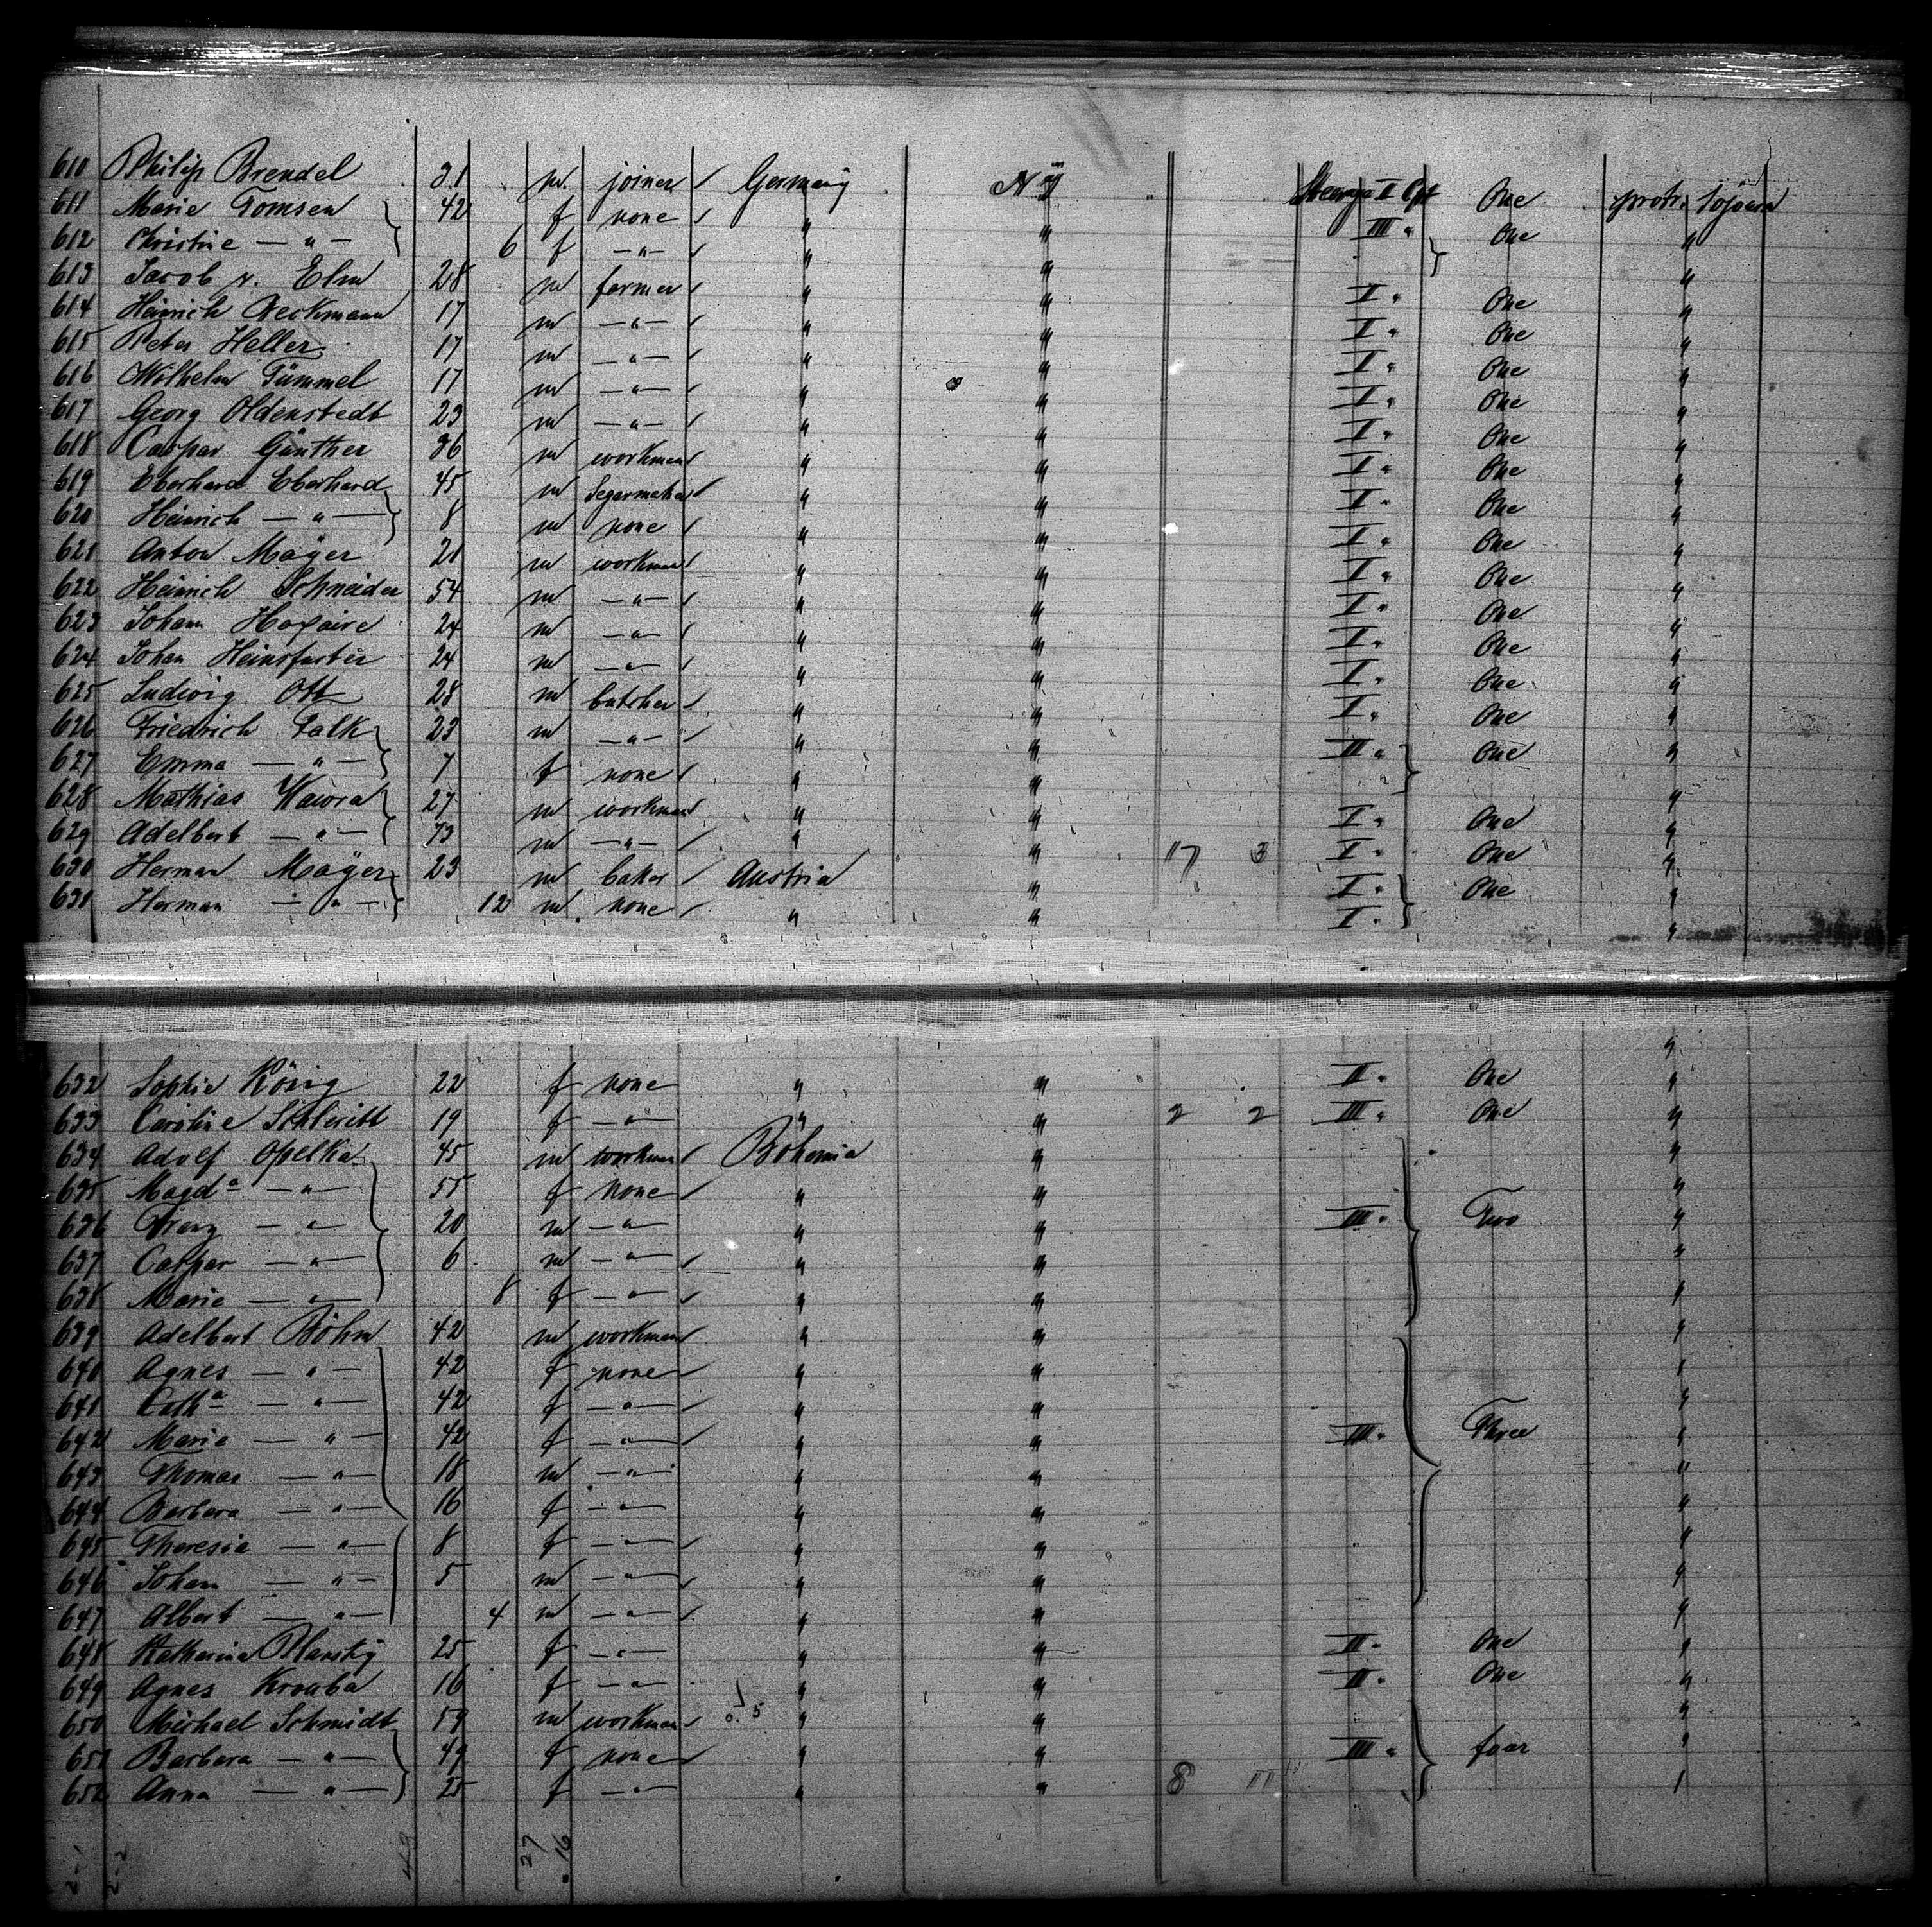 610 Philip Brendel 31 m. joiner Germany NY Steerage II Cpt One protr. sojourn
611 Marie Tomsen 42 f none " " III " One "
612 Christine — " — 6 f — " — " " "
613 Jacob v. Elm 28 m farmer " " I " One "
614 Heinrich Beckmann 17 m — " — " " I " One "
615 Peter Heller 17 m — " — " " I " One "
616 Wilhelm Tümmel 17 m — " — " " I " One "
617 Georg Oldenstedt 23 m — " — " " I " One "
618 Caspar Günther 36 m workman " " I " One "
619 Eberhard Eberhard 45 m Segarmaker " " I " One "
620 Heinrich — " — 8 m none " " I " One "
621 Anton Mayer 21 m workman " " I " One "
622 Heinrich Schneider 54 m — " — " " I " One "
623 Johann 24 m — " — " " I " One "
624 Johan Heinsfurter 24 m — " — " " I " One "
625 Ludwig Ott 28 m butcher " " I " One "
626 Friedrich Falk 23 m — " — " " II " One "
627 Emma — " — 7 f none " " " "
628 Mathias Wawra 27 m workman " " I " One "
629 Adelbert — " — 73 m — " — " " 17 3 I " One "
630 Herman Mayer 23 m baker Austria " I " One "
631 Herman — " — 12 m none " " I " "
632 Sophie König 22 f none " " II " One "
633 Caroline 19 f — " — " " 2 2 III " One "
634 Adolf Opelka 45 m workman Bohemia " "
635 Magda — " — 55 f none " " "
636 Franz — " — 20 m — " — " " III " Two "
637 Caspar — " — 6 m — " — " " "
638 Marie — " — 8 f — " — " " "
639 Adelbert Böhm 42 m workman " " "
640 Agnes — " — 42 f none " " "
641 Catha — " — 42 f — " — " " "
642 Marie — " — 42 f — " — " " III " Three "
643 Thomas — " — 18 m — " — " " "
644 Barbara — " — 16 f — " — " " "
645 Theresia — " — 8 f — " — " " "
646 Johan — " — 5 m — " — " " "
647 Albert — " — 4 m — " — " " "
648 Katharina Plansky 25 f — " — " " II " One "
649 Agnes Krouba 16 f — " — " " II " One "
650 Michael Schmidt 59 m workman " " "
651 Barbara — " — 49 f none " " III " four "
652 Anna — " — 25 f — " — " " 8 "
27 16